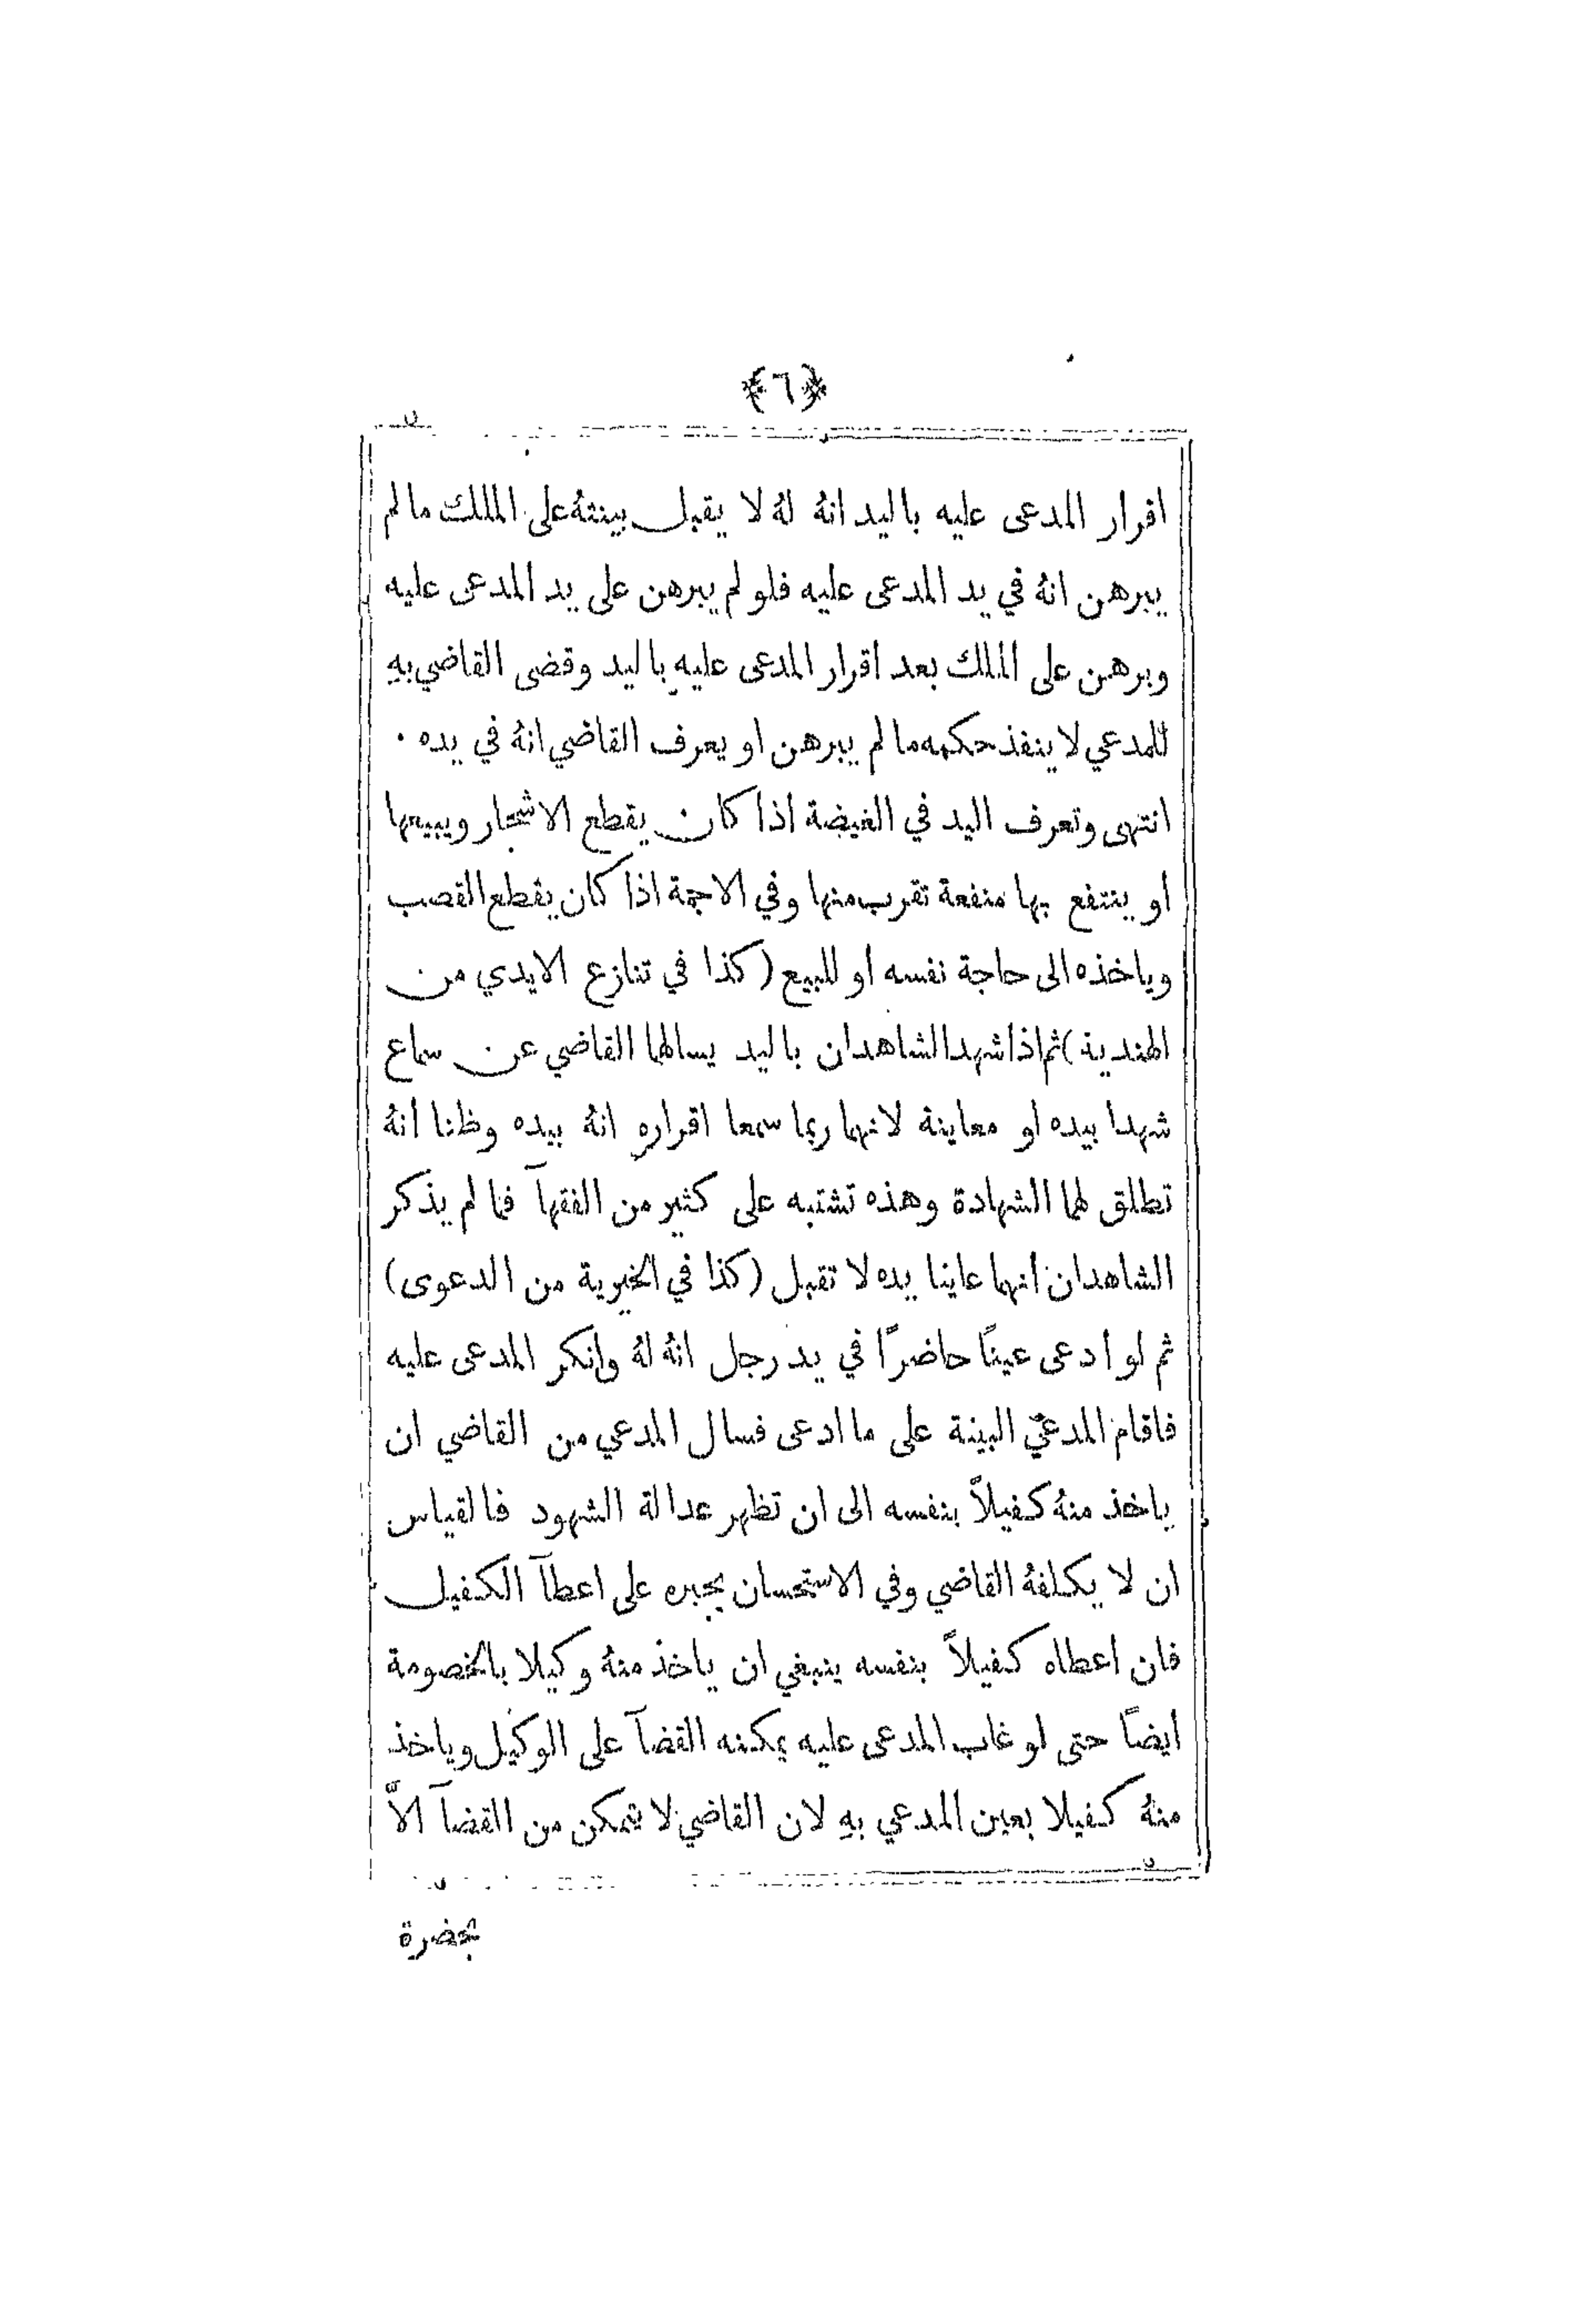 ﴿٦﴾
اقرار المدعى عليه باليد انهُ لهُ لا يقبل بينتهُ على الملك ما لم
يبرهن انهُ في يد المدعى عليه فلو لم يبرهن على يد المدعى عليه
وبرهن على الملك بعد اقرار المدعى عليه باليد وقضى القاضي بهِ
للمدعي لا ينفذ حكمه ما لم يبرهن او يعرف القاضي انهُ في يده ·
انتهى وتعرف اليد في الغيضة اذا كان يقطع الاشجار ويبيعها
او ينتفع بها منفعة تقرب منها وفي الاجمة اذا كان يقطع القصب
وياخذه الى حاجة نفسه او للبيع (كذا في تنازع الايدي من
الهندية) ثم اذا شهد الشاهدان باليد يسالهما القاضي عن سماع
شهدا بيده او معاينة لانهما ربما سمعا اقراره انهُ بيده وظنا انهُ
تطلق لهما الشهادة وهذه تشتبه على كثير من الفقهآ فما لم يذكر
الشاهدان انهما عاينا يده لا تقبل (كذا في الخيرية من الدعوى)
ثم لو ادعى عينًا حاضرًا في يد رجل انهُ لهُ وانكر المدعى عليه
فاقام المدعي البينة على ما ادعى فسال المدعي من القاضي ان
ياخذ منهُ كفيلاً بنفسه الى ان تظهر عدالة الشهود فالقياس
ان لا يكلفهُ القاضي وفي الاستحسان يجبره على اعطآ الكفيل
فان اعطاه كفيلاً بنفسه ينبغي ان ياخذ منهُ وكيلا بالخصومة
ايضًا حتى لو غاب المدعى عليه يمكنه القضآ على الوكيل وياخذ
منهُ كفيلا بعين المدعي بهِ لان القاضي لا يتمكن من القضآ الاّ
بحضرة